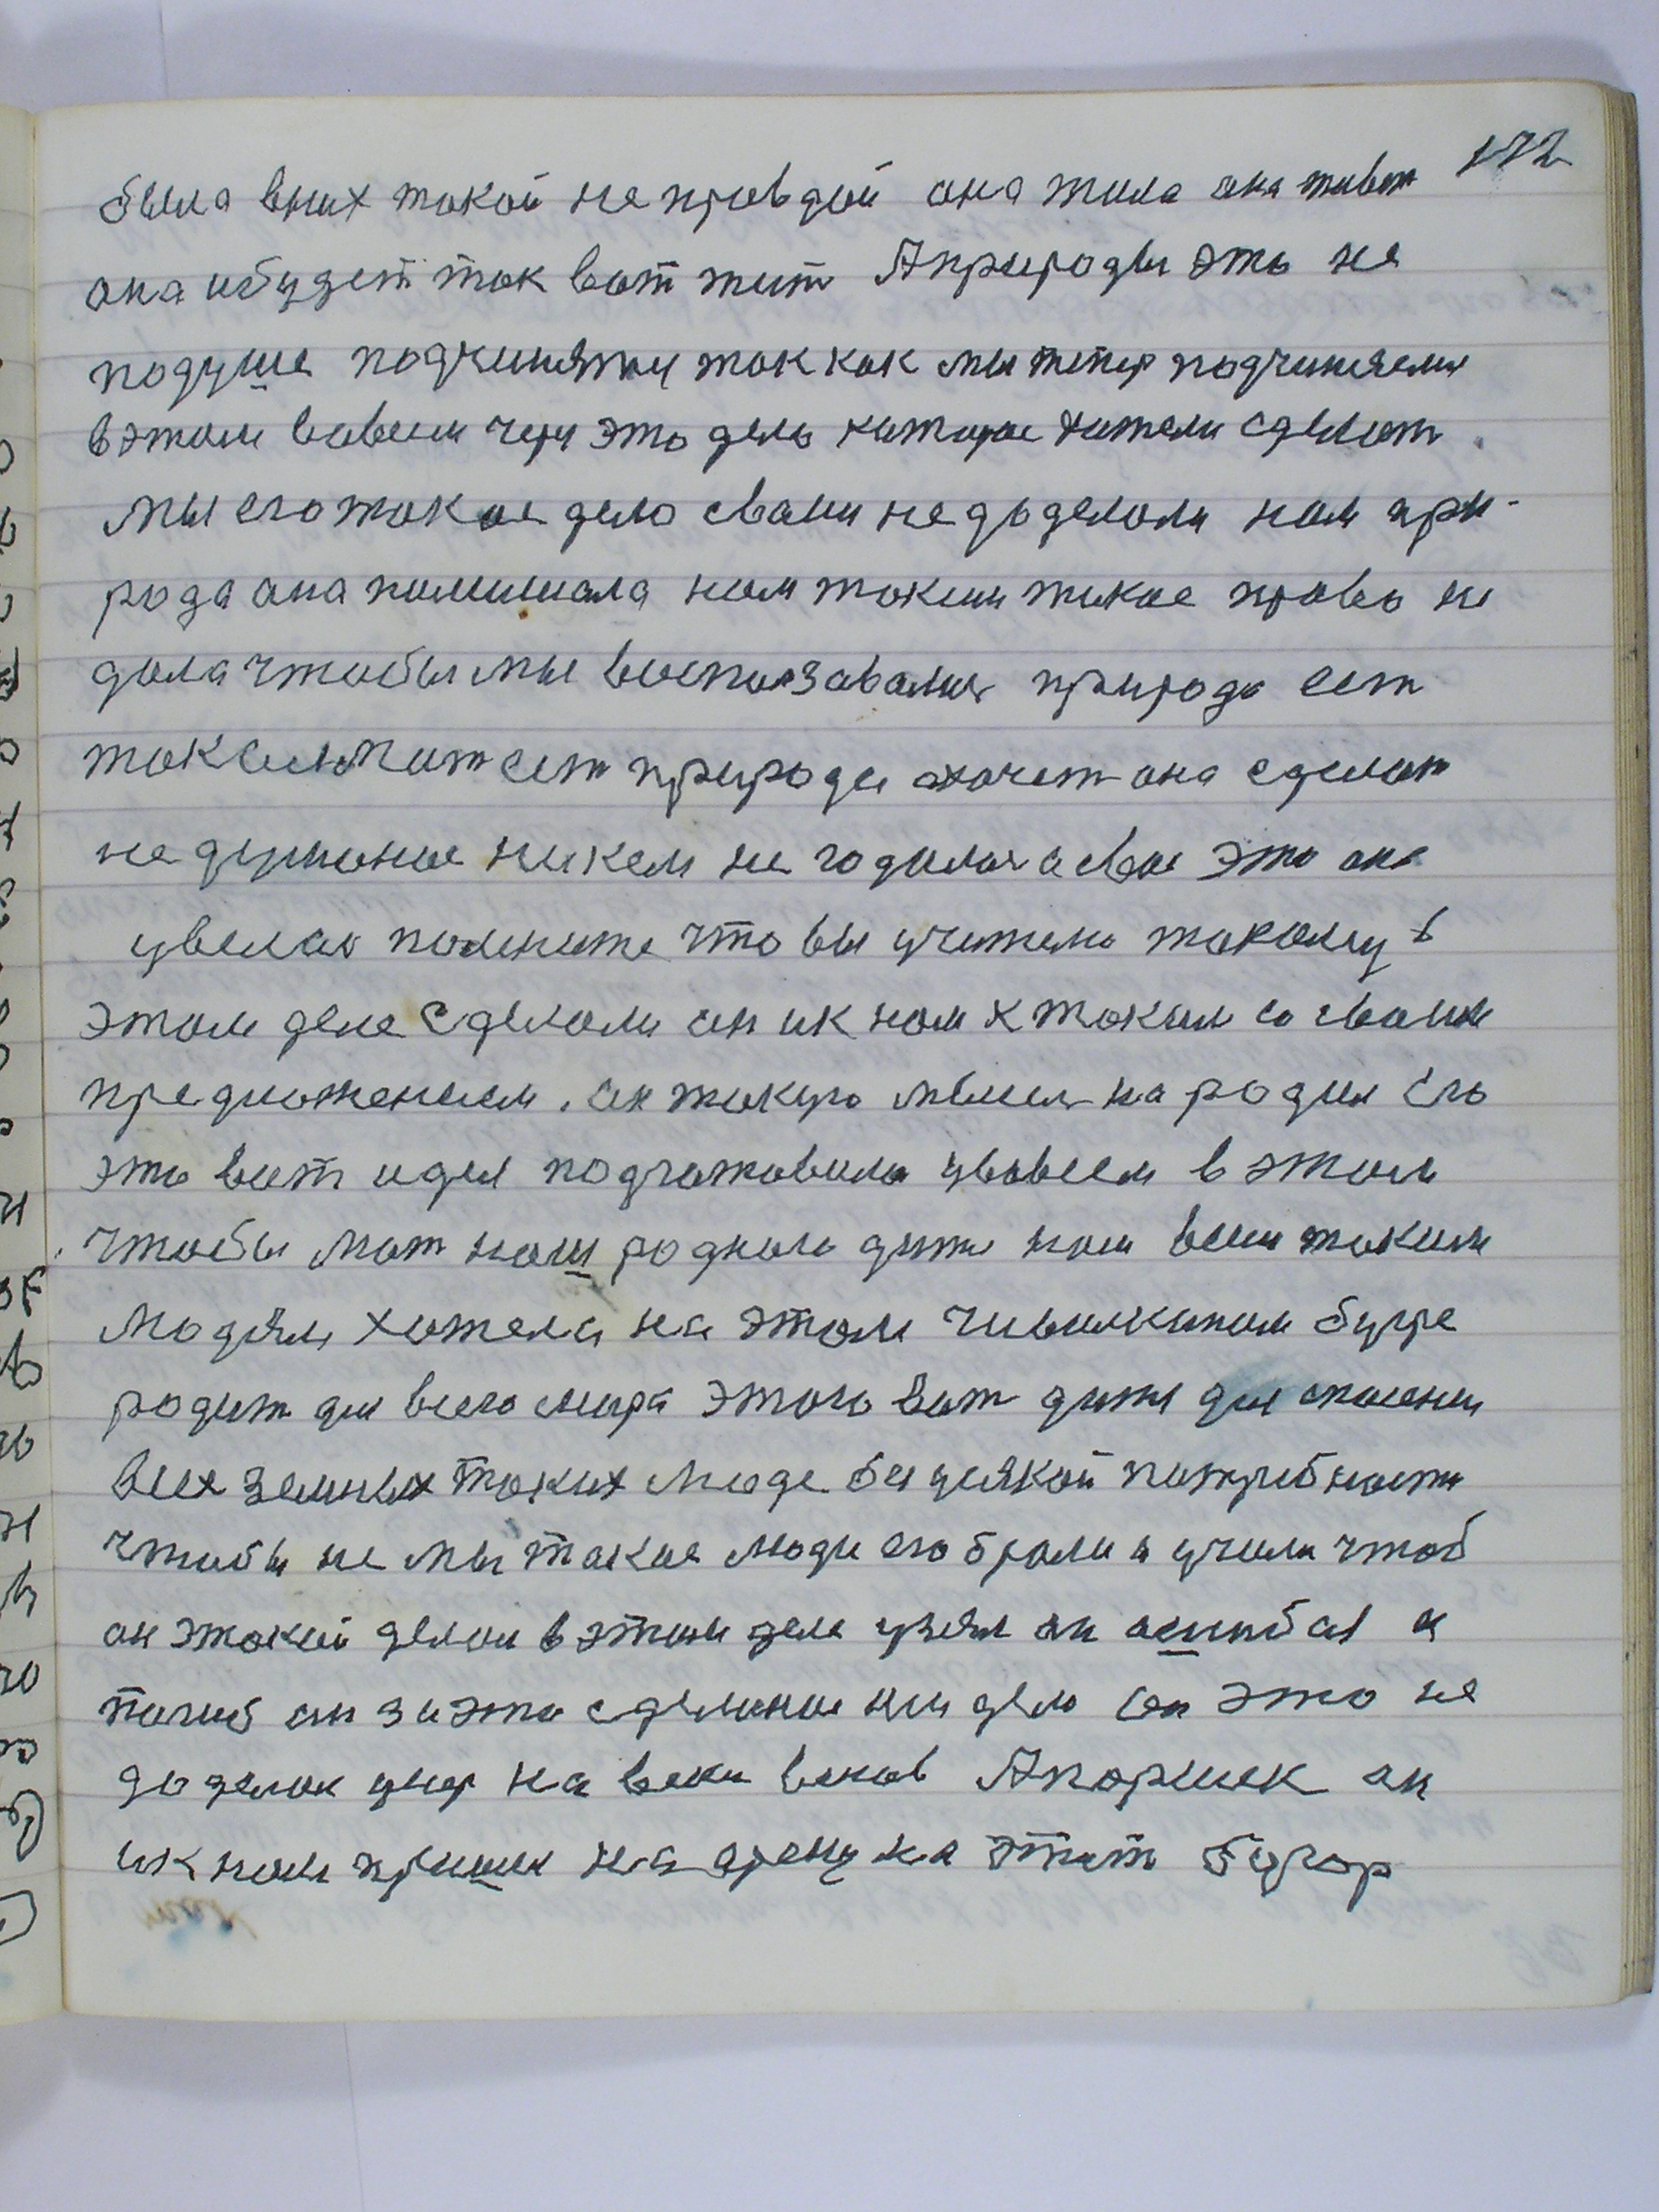 172
была вних такой не правдой она жила она живет
она ибудет так вот жит Априроды эть не
подуше подчинятц так как мы тепер подчиняемя
вэтом вовсем черз это дело каторае хатели сделат
мы его такое дело сваим не доделали нам при-
рода она памишала нам таким такое право не
дала чтобы мы воспользавалис природа ест
так ест природа хочет она сделат
не думоное никем не гадалос а свое это она
увелас помните что вы учителю такому в
этом деле сделали он ик нам к таким со сваим
предложением. он такую мысел народил его
это вот идея подготовила увовсем в этом
чтобы мат наша роднаго дитя нам всим таким
людям хатела на этом чивилкином бугре
родит для всего мира этого вот дитя для спасения
всех земных таких люде без всякой потребности
чтобы не мы такие люди его брали и учили чтоб
он этакий делом вэтом деле узял он ашибся и
погиб он за это сделаное им дело он это не
доделок умер на веки веков Апаршек он
ик нам пришел на арену на этот бугор